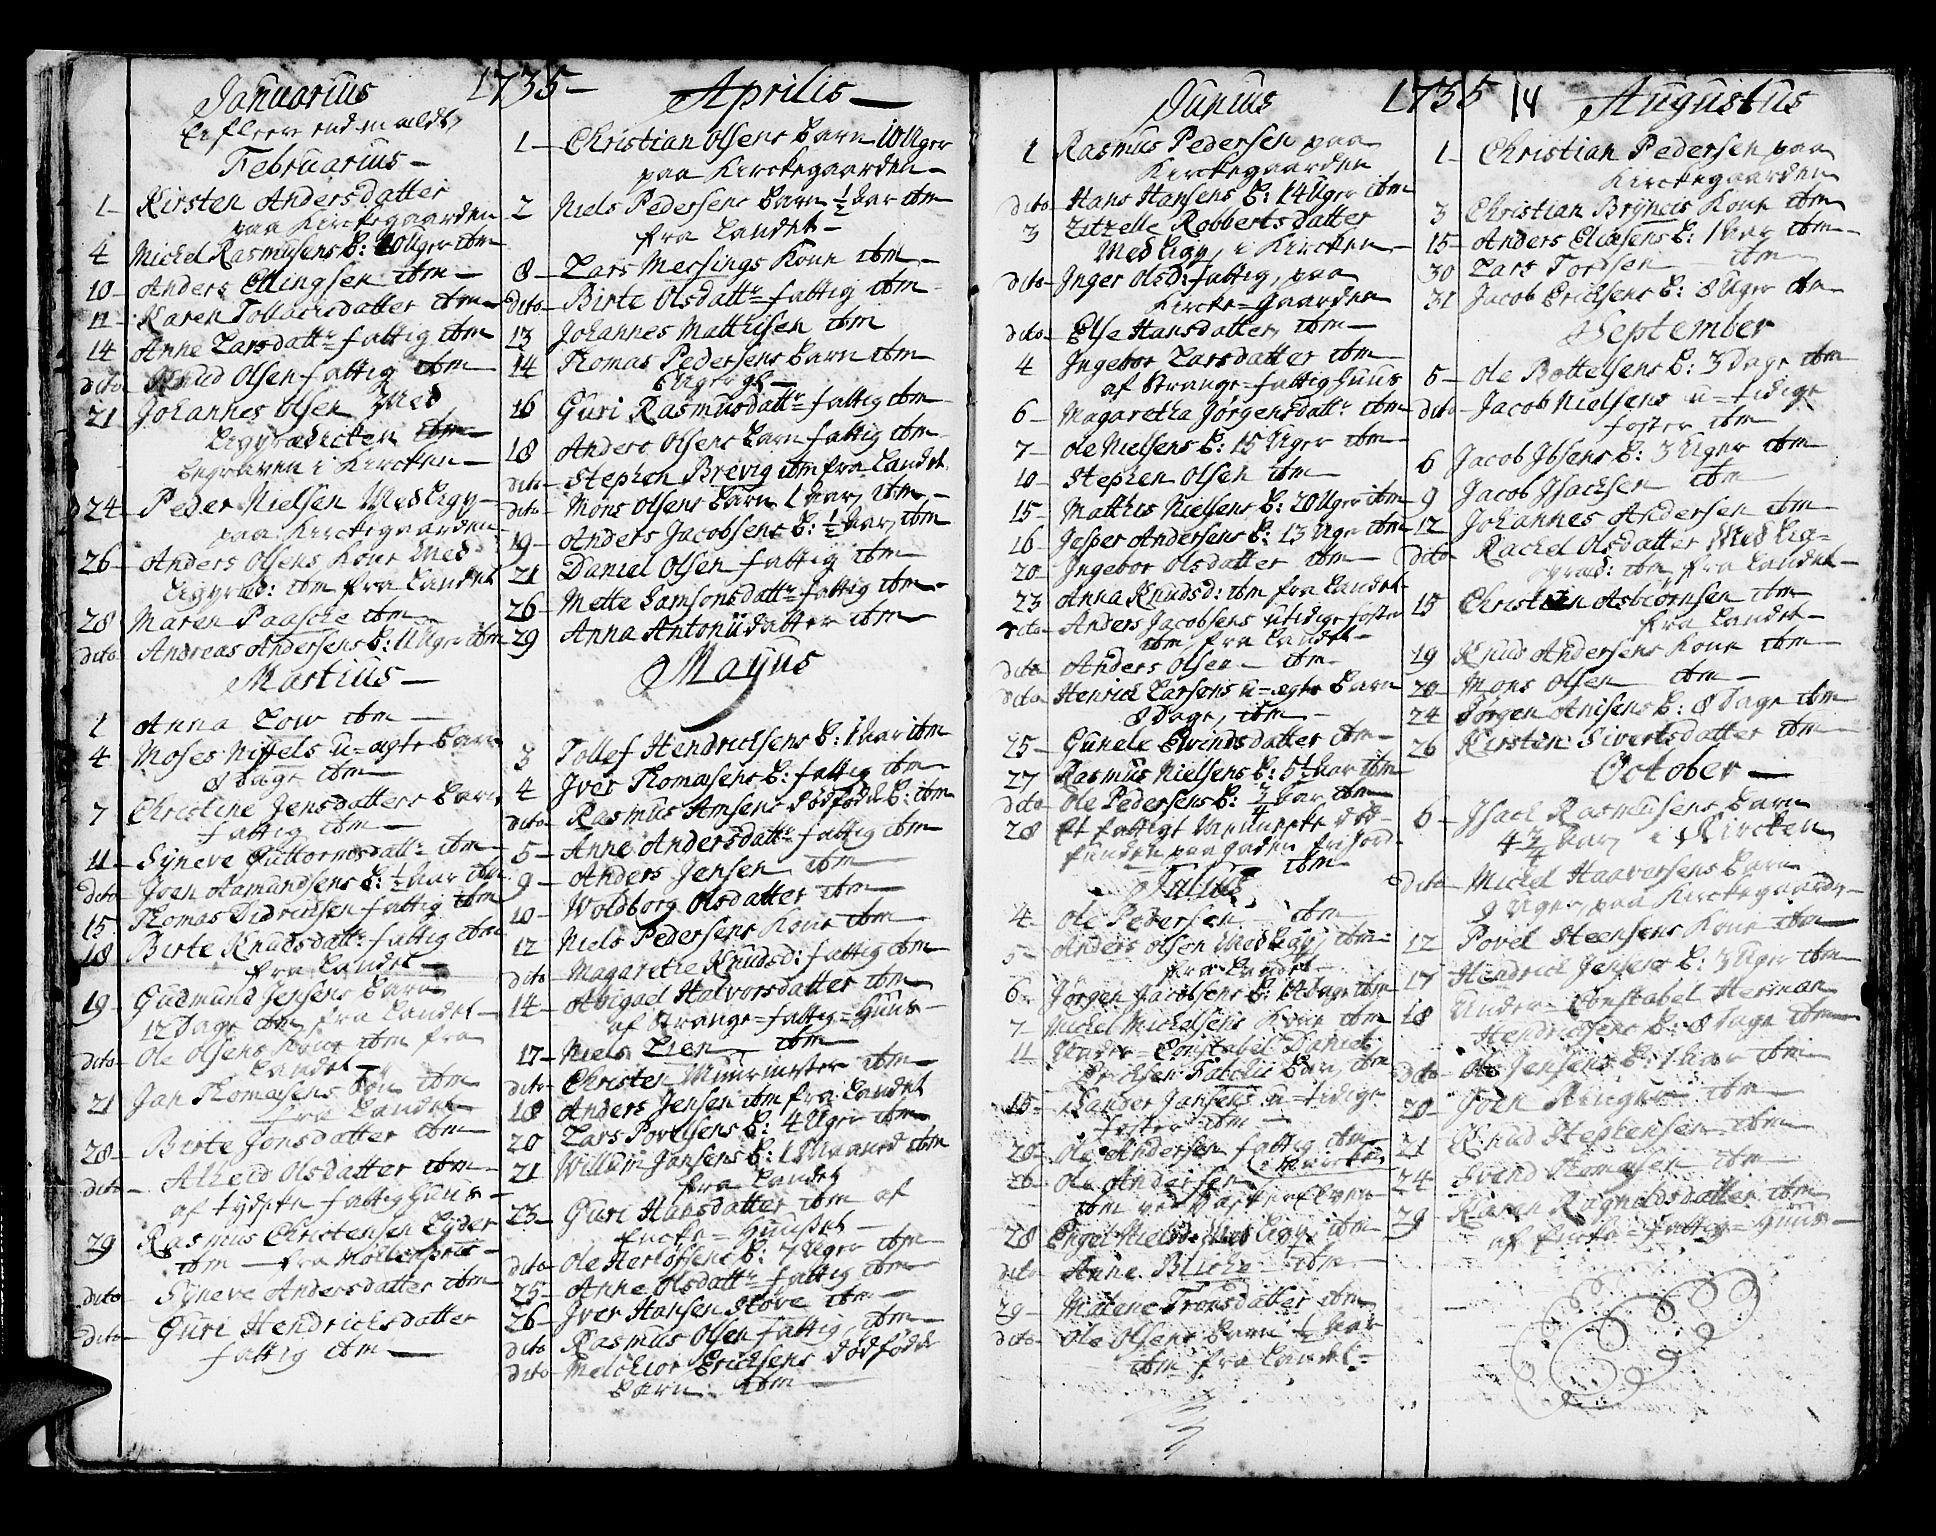 1735
Januarius
Februarius
1 Kirsten Andersdatter
paa Kirckegaarden
4 Michel Rasmusens B: 20 Uger ibm
10 Anders Ellingsen ibm
11 Karen Tollachsdatter ibm
14 Anne Larsdattr fattig ibm
dito Knud Olsen fattig ibm
21 Johannes Olsen Med
ibm
begraven i Kircken
24 Peder Nielsen Med Ligp
paa Kirckegaarden
26 Anders Olsens Kone Med
Ligpræd: ibm fra Landet
28 Maren Paasche ibm
dito Andreas Andersens B: 11 Uger ibm
Martius
1 Anna Low ibm
4 Moses Nissels u-ægte Barn
8 Dage ibm
7 Christine Jensdatters Barn
fattig ibm
11 Syneve Guttormsdattr ibm
dito Joen Aamundsens B: ½ Aar ibm
15 Thomas Didrichsen fattig ibm
18 Birte Knudsdattr fattig ibm
fra Landet
19 Gudmund Jensens Barn
12 Dage ibm fra Landet
dito Ole Olsens Kone ibm fra
Landet
21 Jan Thomæsens Søn ibm
fra Landet
28 Birte Jonsdatter ibm
dito Alheid Olsdatter ibm
af tydske fattighuus
29 Rasmus Christensen Lyder
ibm fra
dito Syneve Andersdatter ibm
dito Guri Hendrichsdatter
fattig ibm
Aprilis
1 Christian Olsens Barn 10 Uger
paa Kirckegaarden
2 Niels Pedersens Barn ½ Aar ibm
fra Landet
8 Lars Mersings Kone ibm
dito Birte Olsdattr fattig ibm
13 Johannes Mathisen ibm
14 Thomas Pedersens Barn ibm
6 Uger gl
16 Guri Rasmusdattr fattig ibm
18 Anders Olsens Barn fattig ibm
dito Stephen Brevig ibm fra Landet
dito Mons Olsens Barn 1 Aar, ibm
19 Anders Jacobsens B: ½ Aar, ibm
21 Daniel Olsen fattig ibm
26 Mette Samsonsdattr fattig ibm
29 Anna Antonii datter ibm
Majus
3 Tollef Hendrichsens B: 1 Aar ibm
4 Jver Thomæsens B: fattig ibm
dito Rasmus Amsens dødfødde B: ibm
5 Anne Andersdattr fattig ibm
9 Anders Jensen ibm
10 Woldborg Olsdatter ibm
12 Niels Pedersens Kone ibm
dito Magarethe Knudsd: fattig ibm
14 Abigael Halvorsdatter ibm
af Strange-fattig-Huus
17 Niels Lien ibm
dito Christen Muurmester ibm
18 Anders Jensen ibm fra Landet
20 Lars Povelsens B: 4 Uger ibm
21 Willum Jansens B: 1 Maaned ibm
fra Landet
23 Guri Hansdatter ibm af
Encke-Huuset
dito Ole Herlofsens B: 7 Uger ibm
25 Anne Olsdattr fattig ibm
26 Jver Hansen Støve ibm
dito Rasmus Olsen fattig, ibm
dito Melchior Erichsens dødfødde
Barn ibm
1735 14
Junius
1 Rasmus Pedersen paa
Kirckegaarden
dito Hans Hansens B: 14 Uger ibm
3 Zitzelle Robbertsdatter
Med Ligp, i Kircken
dito Inger Olsd: fattig, paa
Kircke-Gaarden
dito Else Hansdatter, ibm
4 Ingebor Larsdatter ibm
af Strange-fattighuus
6 Magaretha Jørgensdattr ibm
7 Ole Nielsens B: 15 Uger ibm
10 Stephen Olsen ibm
15 Mathis Nielsens B: 20 Uger ibm
16 Jesper Andersens B: 13 Uger ibm
20 Ingebor Olsdatter ibm
23 Anna Knudsd: ibm fra Landet
dito Anders Jacobsens utidige foster
ibm fra Landet
dito Anders Olsen ibm
dito Henrich Larsens u-ægte Barn
8 Dage, ibm
25 Gunele Evindsdatter ibm
27 Rasmus Nielsens B: 5½ Aar ibm
dito Ole Pedersens B: ¾ Aar ibm
28 Et fattigt død
funden paa gaden
ibm
Julius
4 Ole Pedersen ibm
5 Anders Olsen Med Ligp, ibm
fra Landet
6 Jørgen Jacobsens B: 14 Dage ibm
7 Michel Michelsens Kone ibm
11 Under-Constabel Daniel
Erichsen Barn, ibm
15 Sander Jansens u-tidige
foster ibm
20 Ole Andersen fattig ibm
26 Ole Andersen
ibm
28 Engel Nielsd: Med Ligp, ibm
dito Anne Blichs ibm
29 Malene Tronsdatter ibm
dito Ole Olsens Barn ½ Aar
ibm fra Landet
Augustus
1 Christian Pedersen paa
Kirckegaarden
3 Christian Bryncis Kone ibm
15 Anders Eliæsens B: 1 Aar ibm
30 Lars Tordsen ibm
31 Jacob Erichsens B: 8 Uger ibm
September
5 Ole Bottelsens B: 3 Dage ibm
dito Jacob Nielsens u-tidige
foster ibm
6 Jacob Ibsens B: 3 Uger ibm
9 Jacob Isachsen ibm
12 Johannes Andersen ibm
dito Rachel Olsdatter Med Lig-
præd: ibm fra Landet
15 Christen Asbiørnsen ibm
fra Landet
19 Knud Andersens Kone ibm
20 Mons Olsen ibm
24 Jørgen Anisens B: 8 Dage ibm
26 Kirsten Sivertsdatter ibm
October
6 Isach Rasmusens Barn
4¾ Aar, i Kircken
dito Michel Haaversens Barn
9 Uger, paa Kirckegaarde
12 Povel Steensens Kone ibm
17 Hendrich Jensens B: 3 Uger ibm
18 Under-Constabel Herman
Hendrichsens B: 8 Dage ibm
dito Ole Jensens B: 1 Aar ibm
20 Joen ibm
21 Knud Stephensen ibm
24 Svend Thomæsen ibm
29 Karen Ragnaldsdatter ibm
af Encke-Fattig-Huus